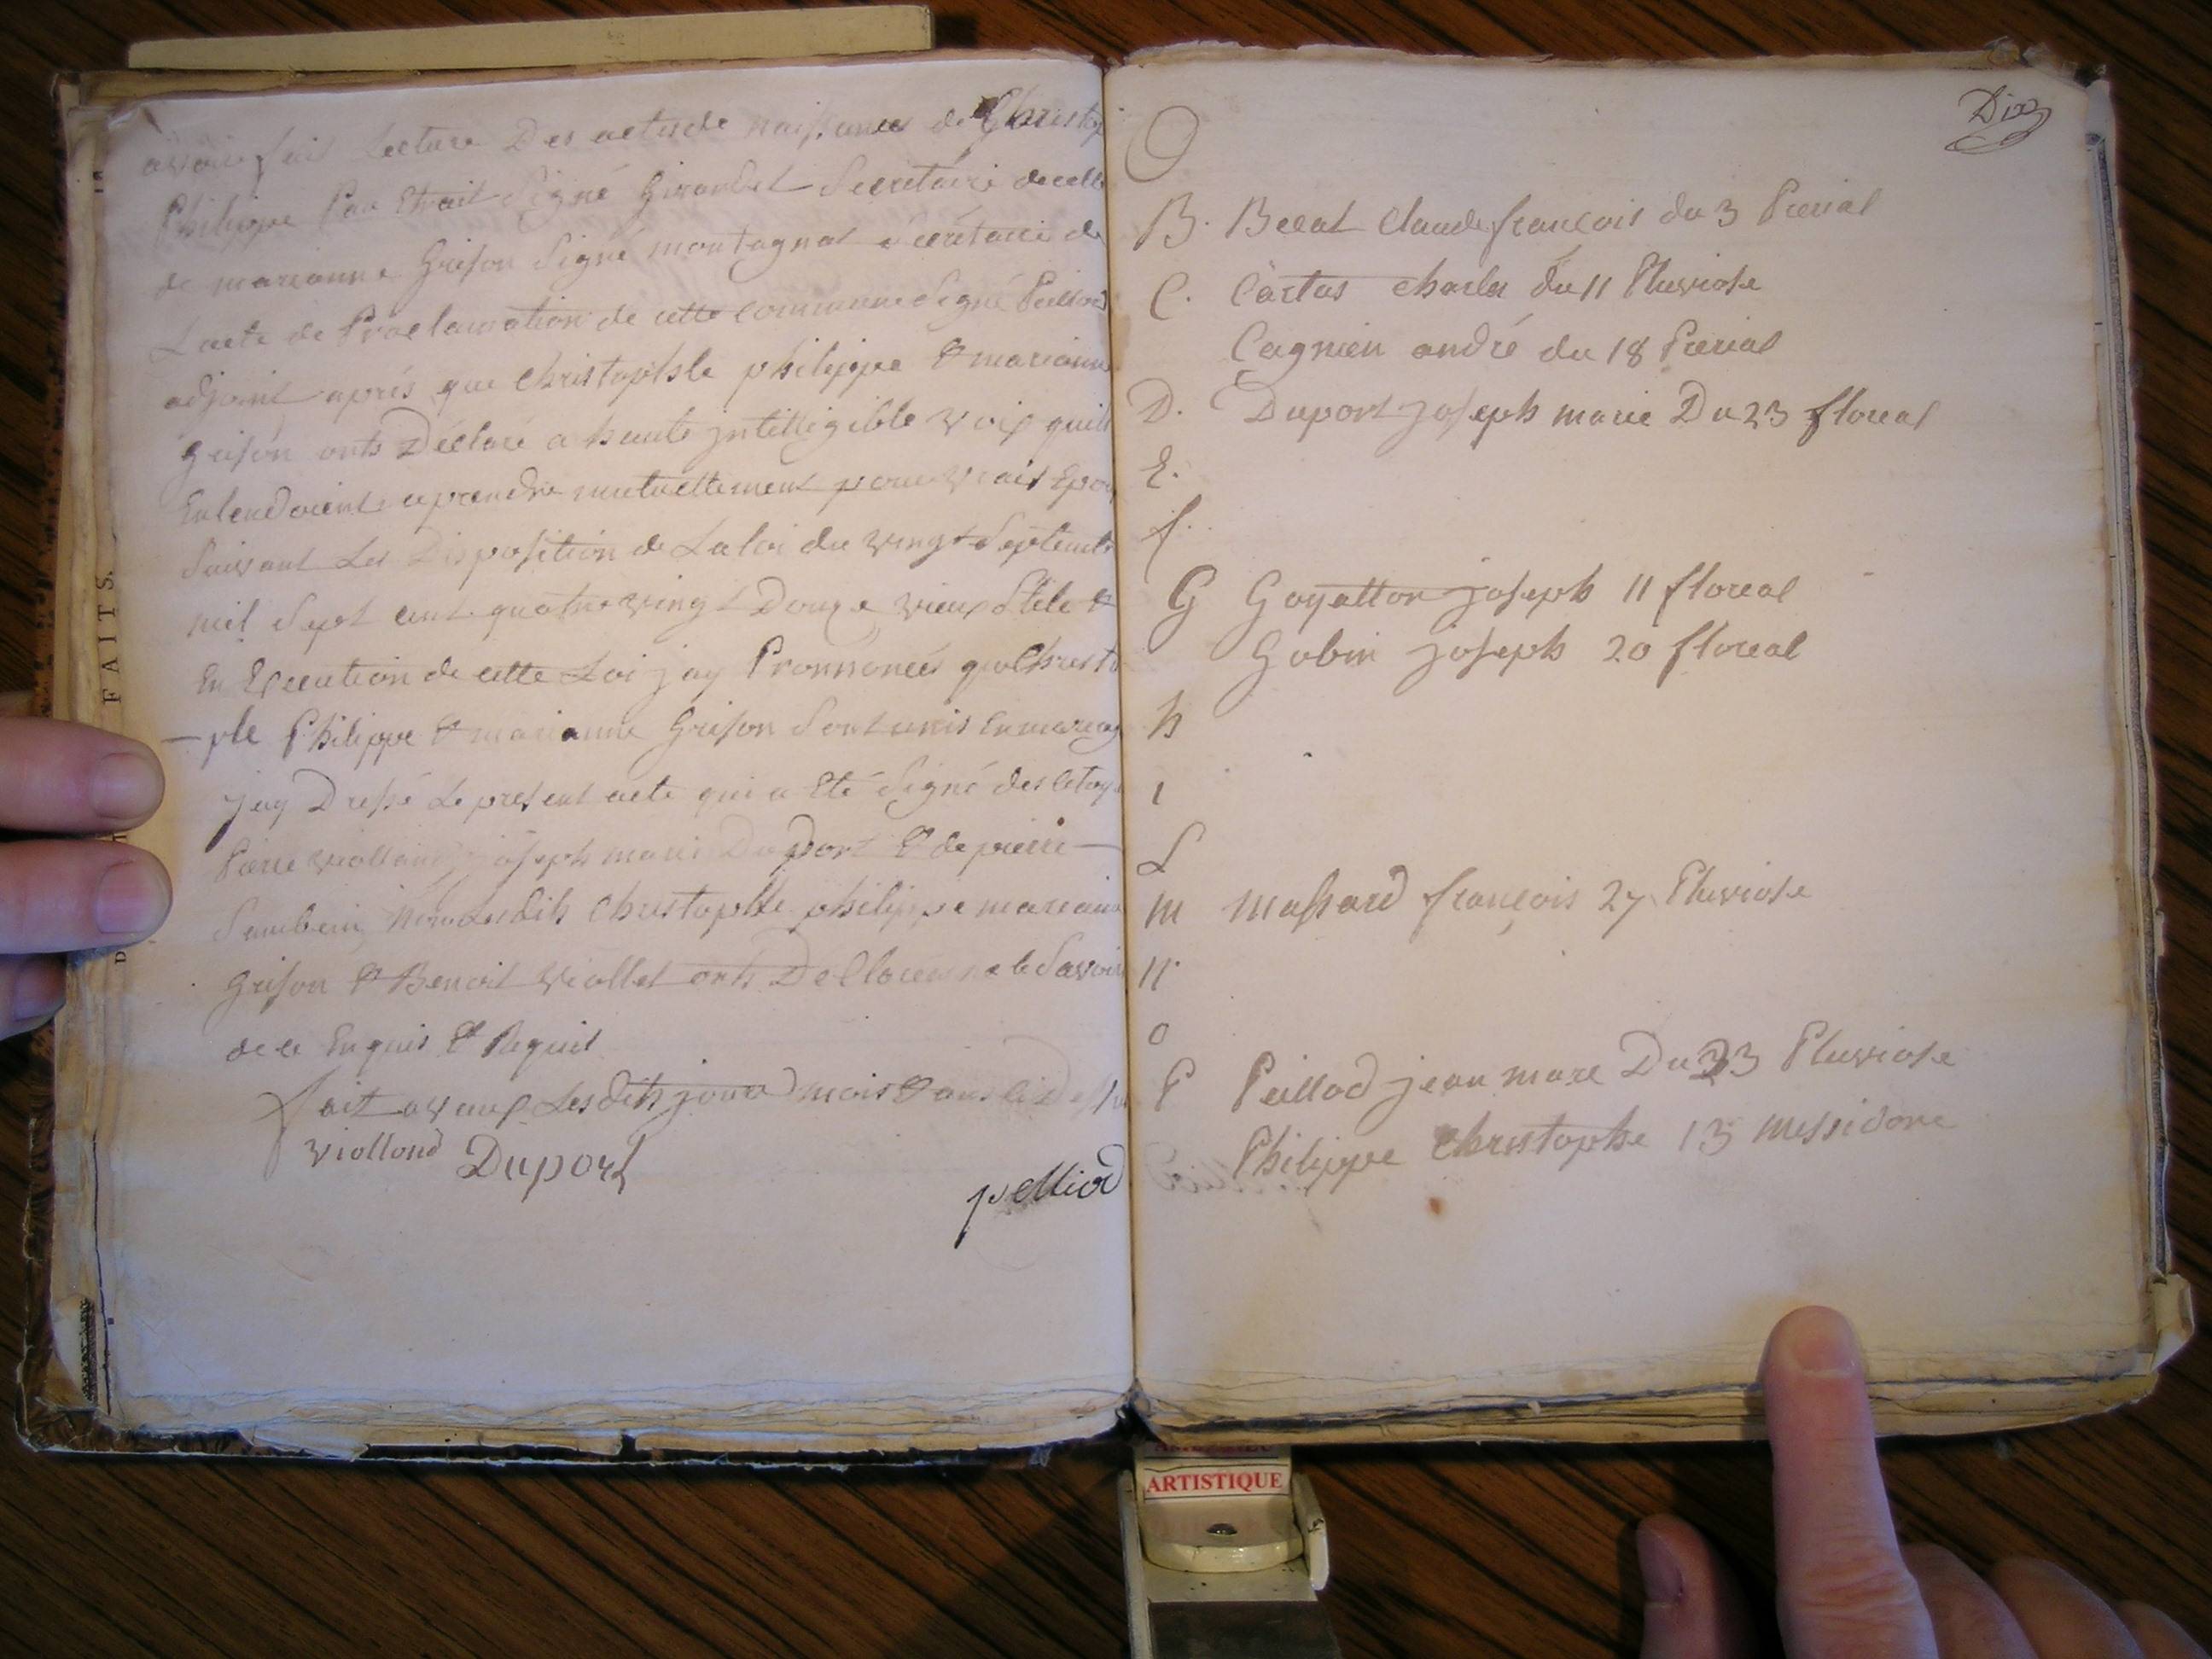 avoir fait Lecture Des actes de naissances de Christo
Philippe Par Etrait Signé Girardet Secretaire de celle
de marianne Grison Signé montagnat Secrétaire de
L'acte de Proclamation de cette commune Signé Peillod
adjoint après que Christophle philippe & marianne
Grison onts Déclaré a haute jntelligible voix quils
Entendoient se prendre mutuellement pour vrais Epou
Suivant Les Disposition de La loi du vingt Septembre
mil Sept cent quatre vingt Douze vieux Stile &
En Execution de cette Loi jay Prononcés que Christo
-ple Philippe & marianne Grison Sont unis En mariag
jay Dressé Le present acte qui a Eté Signé des Citoy
Pierre viollond joseph marie Duport & de pierre
non Lesdits Christophle philippe marianne
Grison & Benoit viollet onts Declarés ne le Savoir
de ce Enquis & Requis
fait aveux Les dits jour mois & ans ci Dessu
viollond Duport
pelliod
FAITS.
Dix
B. Becat Claude françois du 3 Prerial
C. Cartas charles du 11 Pluviose
Cagnien andré du 18 Prerial
D. Duport joseph marie Du 23 floreal
E.
f.
G Goyatton joseph 11 floreal
Gobin joseph 20 floreal
h
i
L
m massard françois 27 Pluviose
n
o
P Peillod jean marc Du 23 Pluviose
Philippe Christophe 13 messidore
ARTISTIQUE